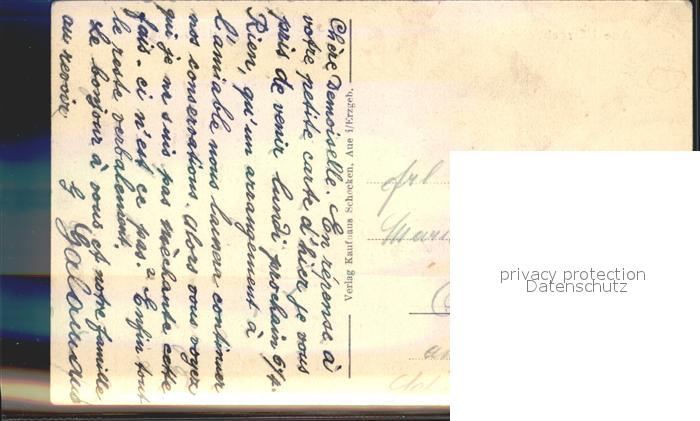 Chère Demoiselle. En réponse à
votre petite carte d'hier je vous
pris de venir lundi prochain 6/7.
Rien, qu'un arrangement à
l'amiable nous laissera continuer
nos conservations. Alors vous voyez
que je ne suis pas méchante cette
fois-ci n'est ce pas? Enfin tout
le reste verbalement
Le bonjour à vous et votre famille
au revoir
G
Verlag Kaufhaus Schocken, Aue i/Erzgeb.
Frl
privacy protection
Datenschutz